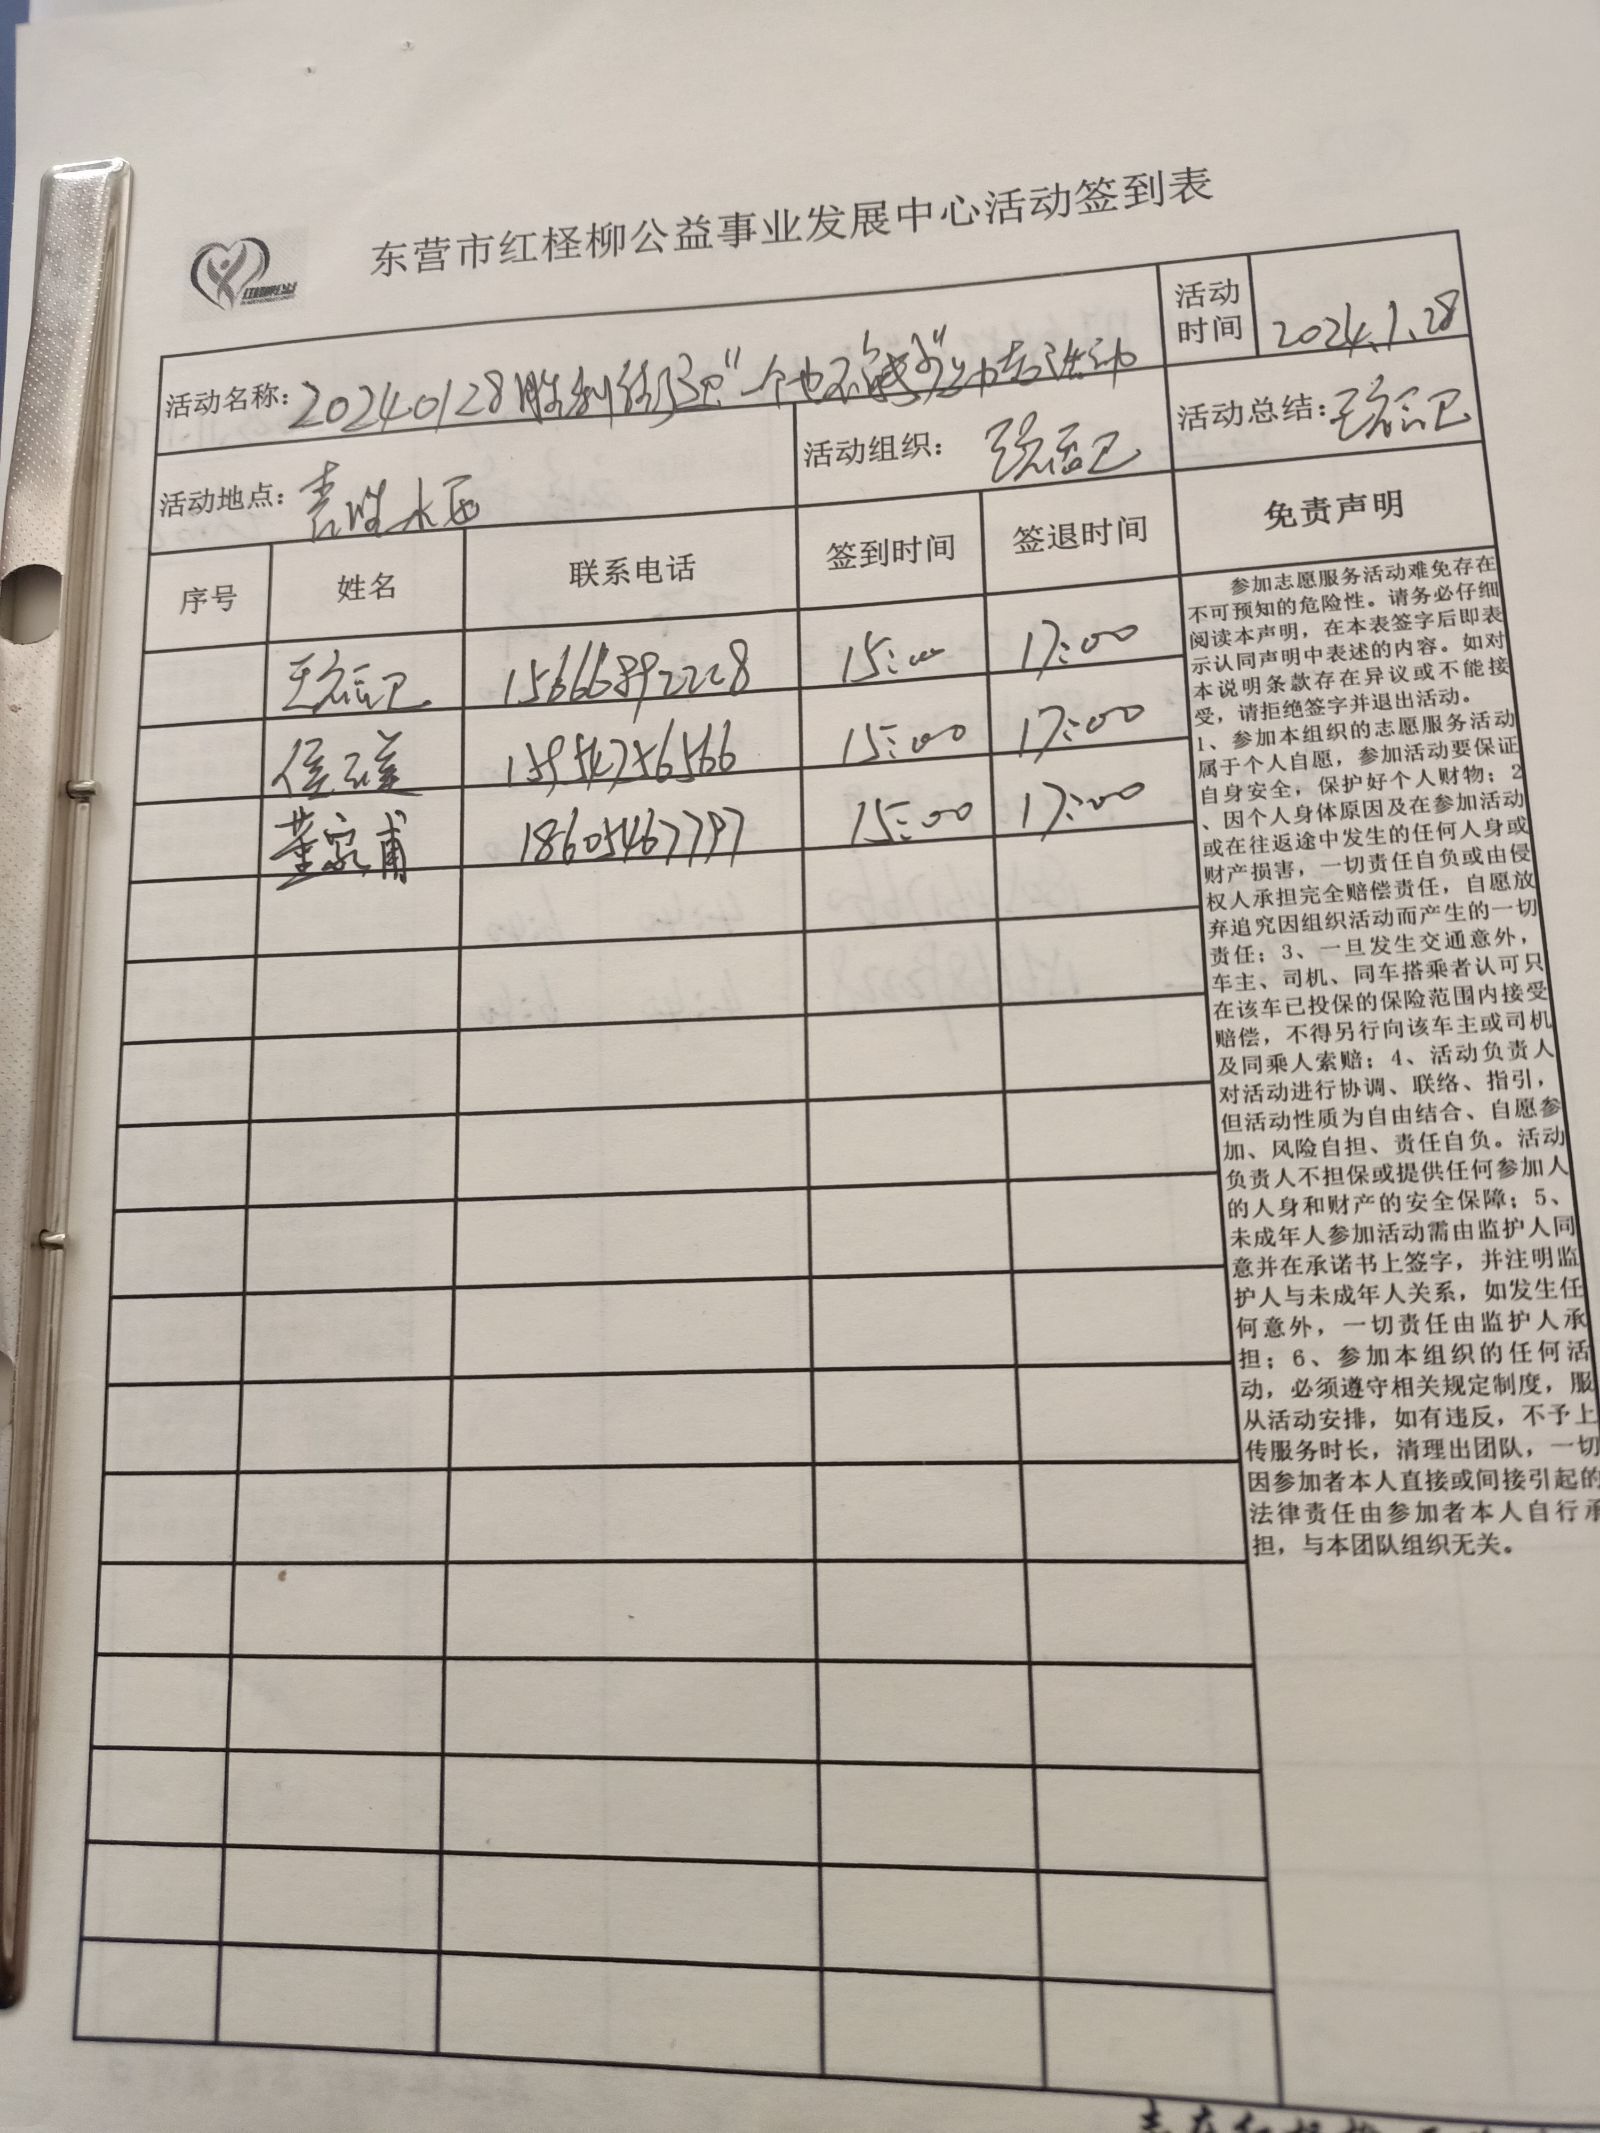 东营市红柽柳公益事业发展中心活动签到表
活动名称：20240128胜利街道"一个也不能少"助 活动
活动时间 2024.1.28
活动地点：
活动组织：
活动总结：
序号 姓名 联系电话 签到时间 签退时间 免责声明
15666892228 15:00 17:00
15954756566 15:00 17:00
董家甫 18605467797 15:00 17:00
参加志愿服务活动难免存在
不可预知的危险性。请务必仔细
阅读本声明，在本表签字后即表
示认同声明中表述的内容。如对
本说明条款存在异议或不能接
受，请拒绝签字并退出活动。
1、参加本组织的志愿服务活动
属于个人自愿，参加活动要保证
自身安全，保护好个人财物；2
、因个人身体原因及在参加活动
或在往返途中发生的任何人身或
财产损害，一切责任自负或由侵
权人承担完全赔偿责任，自愿放
弃追究因组织活动而产生的一切
责任；3、一旦发生交通意外，
车主、司机、同车搭乘者认可只
在该车已投保的保险范围内接受
赔偿，不得另行向该车主或司机
及同乘人索赔；4、活动负责人
对活动进行协调、联络、指引，
但活动性质为自由结合、自愿参
加、风险自担、责任自负。活动
负责人不担保或提供任何参加人
的人身和财产的安全保障；5、
未成年人参加活动需由监护人同
意并在承诺书上签字，并注明监
护人与未成年人关系，如发生任
何意外，一切责任由监护人承
担；6、参加本组织的任何活
动，必须遵守相关规定制度，服
从活动安排，如有违反，不予上
传服务时长，清理出团队，一切
因参加者本人直接或间接引起的
法律责任由参加者本人自行承
担，与本团队组织无关。